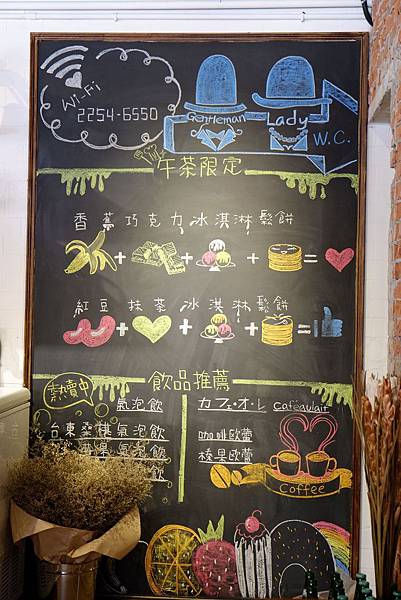 Wi-Fi
2254-6550
Gentleman
Lady
W.C.
午茶限定
香蕉巧克力冰淇淋鬆餅
+ + + =
紅豆抹茶冰淇淋鬆餅
+ + + =
飲品推薦
熱賣中
氣泡飲
台東桑椹氣泡飲
氣泡飲
飲
カフェ・オ・レ Caféaulait
咖啡歐蕾
榛果歐蕾
Coffee